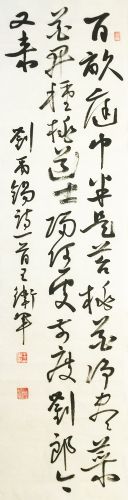 百畝庭中半是苔桃花净盡菜
花開種桃道士歸何處前度劉郎今
又來
劉禹錫詩一首王衛軍